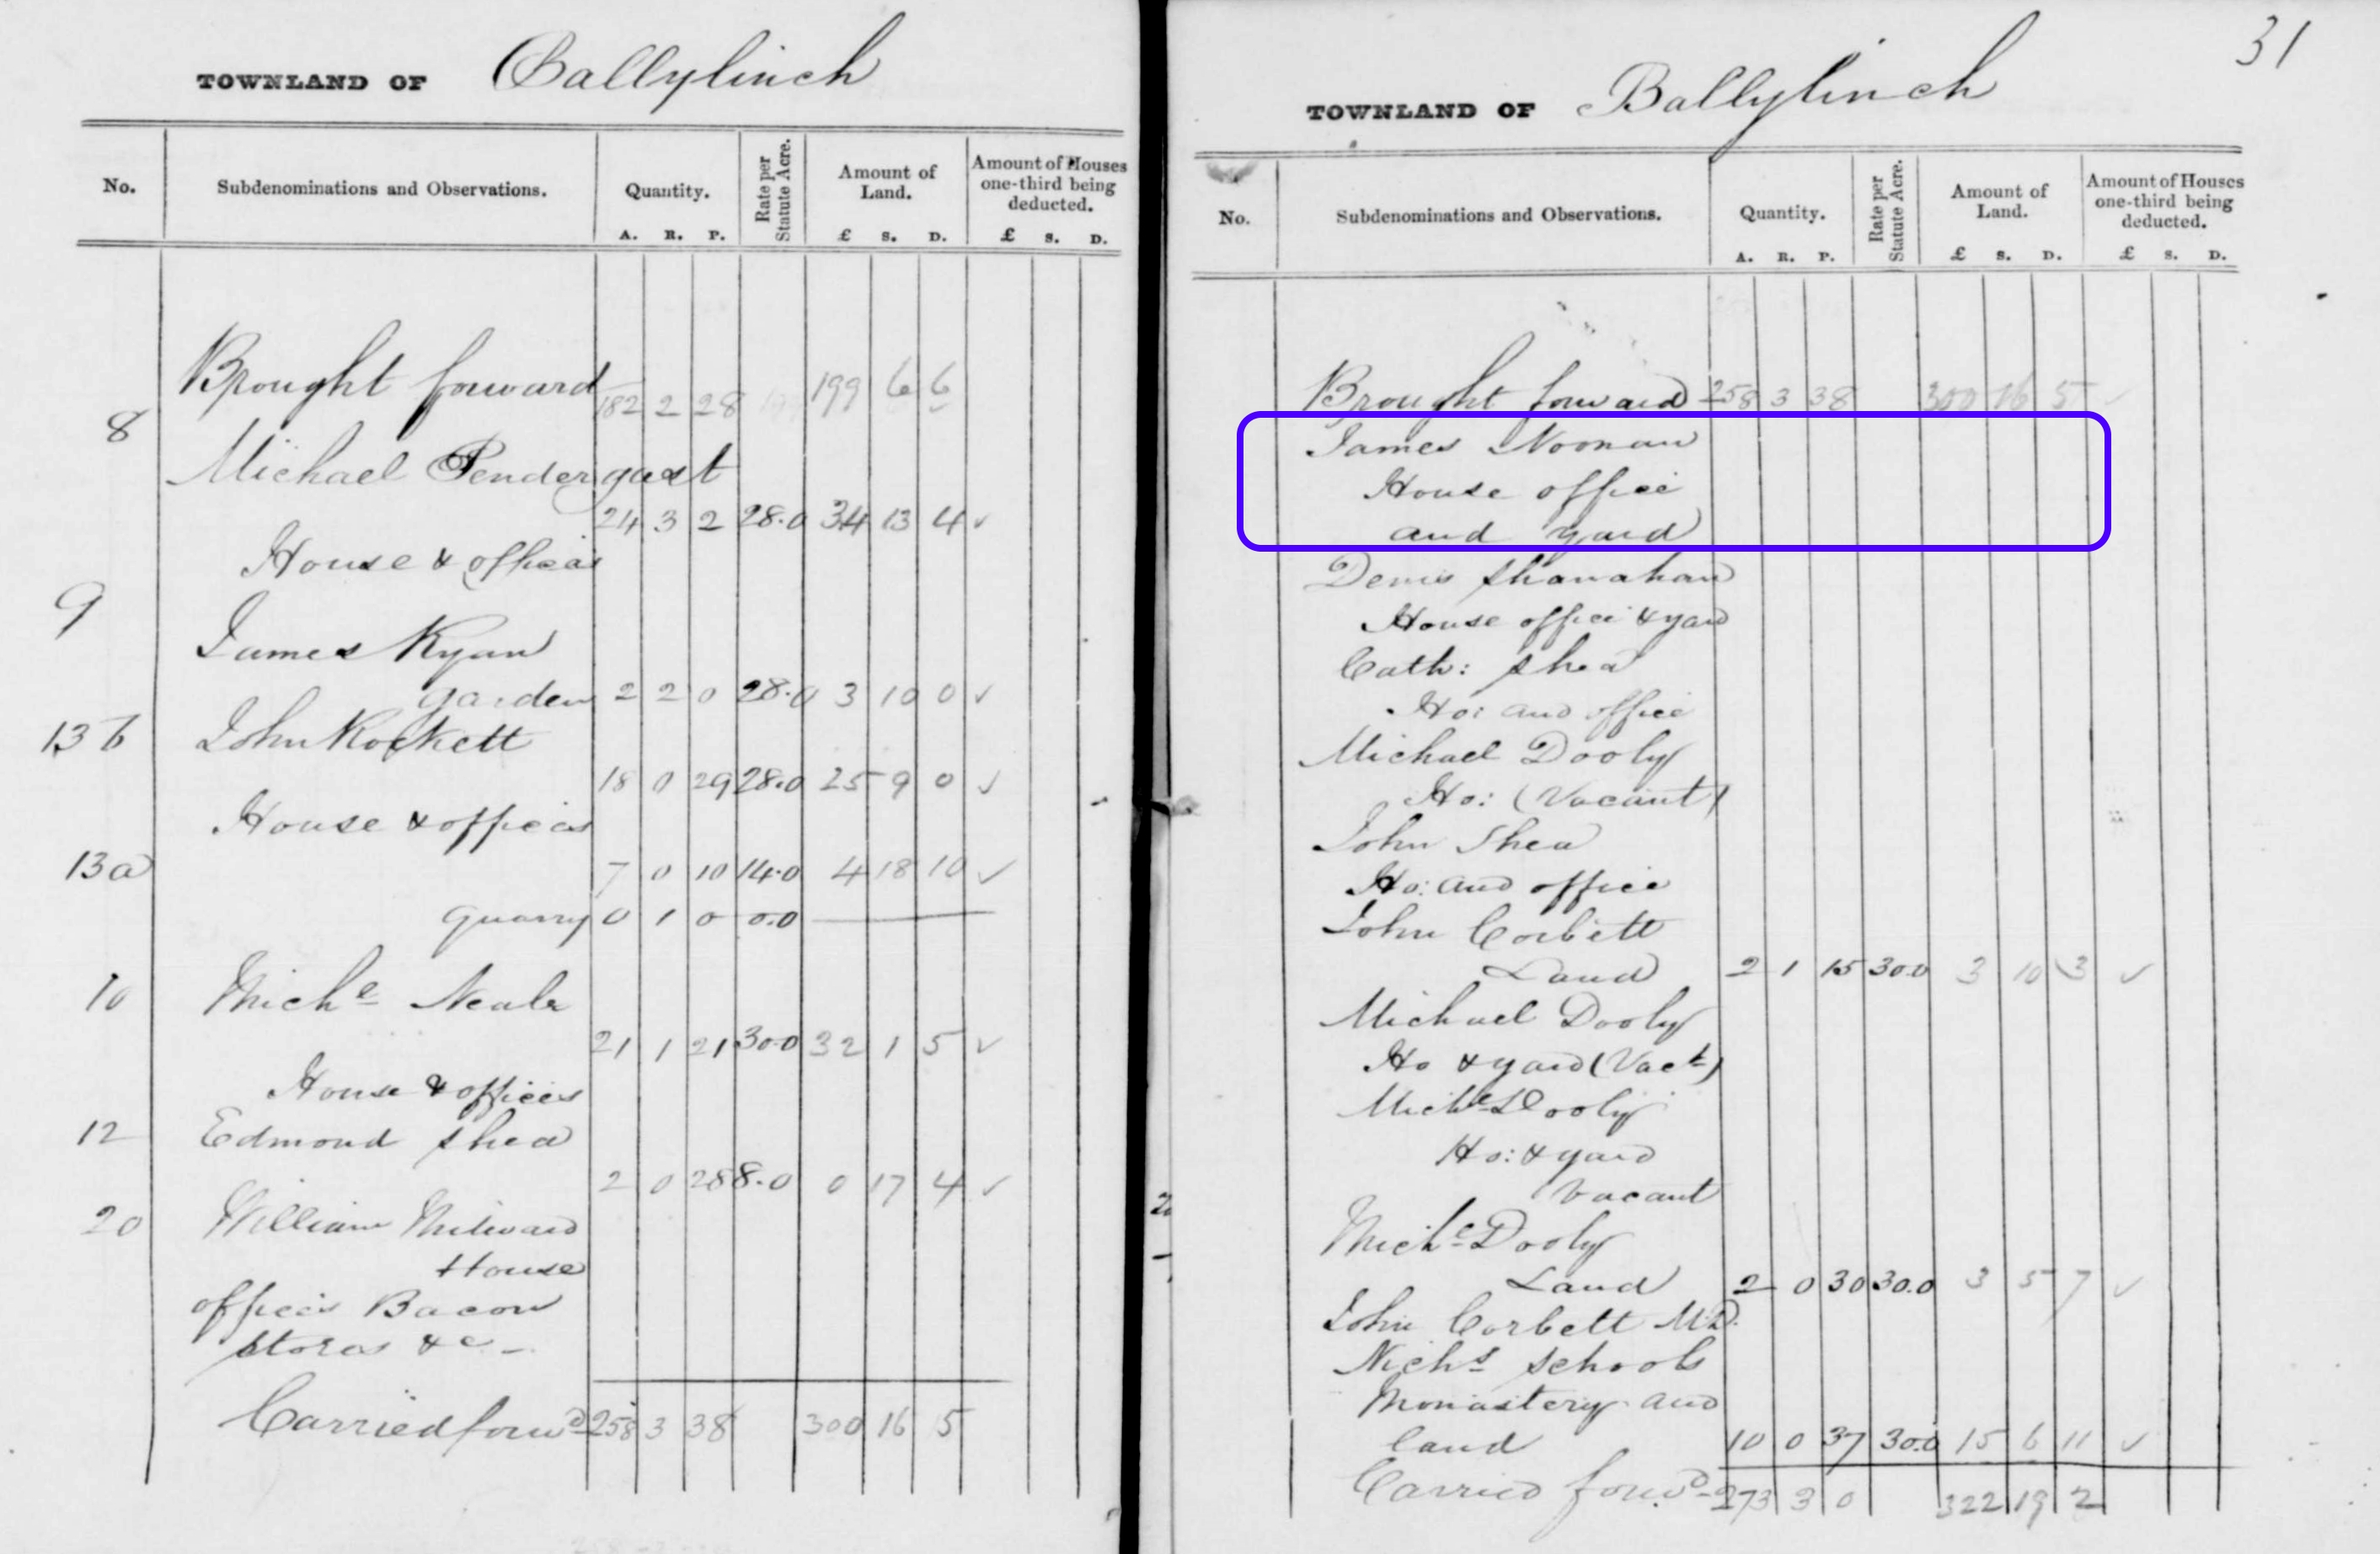 TOWNLAND OF Ballylinch
No. Subdenominations and Observations. Quantity. Rate per Statute Acre. Amount of Land. Amount of Houses one-third being deducted.
A. R. P. £ S. D. £ S. D.
Brought forward 182 2 28 199 6 6
8 Michael Pendergast
24 3 2 28.0 34 13 4 ✓
House & offices
9 James Ryan
garden 2 2 0 28.0 3 10 0 ✓
13 b John Rockett
18 0 29 28.0 25 9 0 ✓
House & offices
13a 7 0 10 14.0 4 18 10 ✓
quarry 0 1 0 0.0
10 Miche Neale
21 1 21 30.0 32 1 5 ✓
House & offices
12 Edmond Shea
2 0 28 8.0 0 17 4 ✓
20 William Milward
House
offices Bacon
stores &c -
Carried forwd 258 3 38 300 16 5
31
TOWNLAND OF Ballylinch
No. Subdenominations and Observations. Quantity. Rate per Statute Acre. Amount of Land. Amount of Houses one-third being deducted.
A. R. P. £ S. D. £ S. D.
Brought forward 258 3 38 300 16 5 ✓
James Noonan
House office
and yard
Denis Shanahan
House office & yard
Cath: Shea
Ho: and office
Michael Dooly
Ho: (Vacant)
John Shea
Ho: and office
John Corbett
Land 2 1 15 30.0 3 10 3 ✓
Michael Dooly
Ho & yard (Vact)
Miche Dooly
Ho: & yard
Vacant
Miche Dooly
Land 2 0 30 30.0 3 5 7 ✓
John Corbett M.D.
Nichs Schools
Monastery and
land 10 0 37 30.0 15 6 11 ✓
Carried forwd - 273 3 0 322 19 2